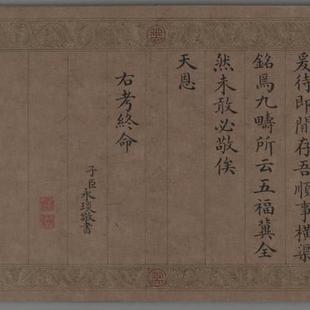 爰待即閒存吾順事橫渠
銘焉九疇所云五福冀全
然未敢必敬俟
天恩
右考終命
子臣永瑆敬書